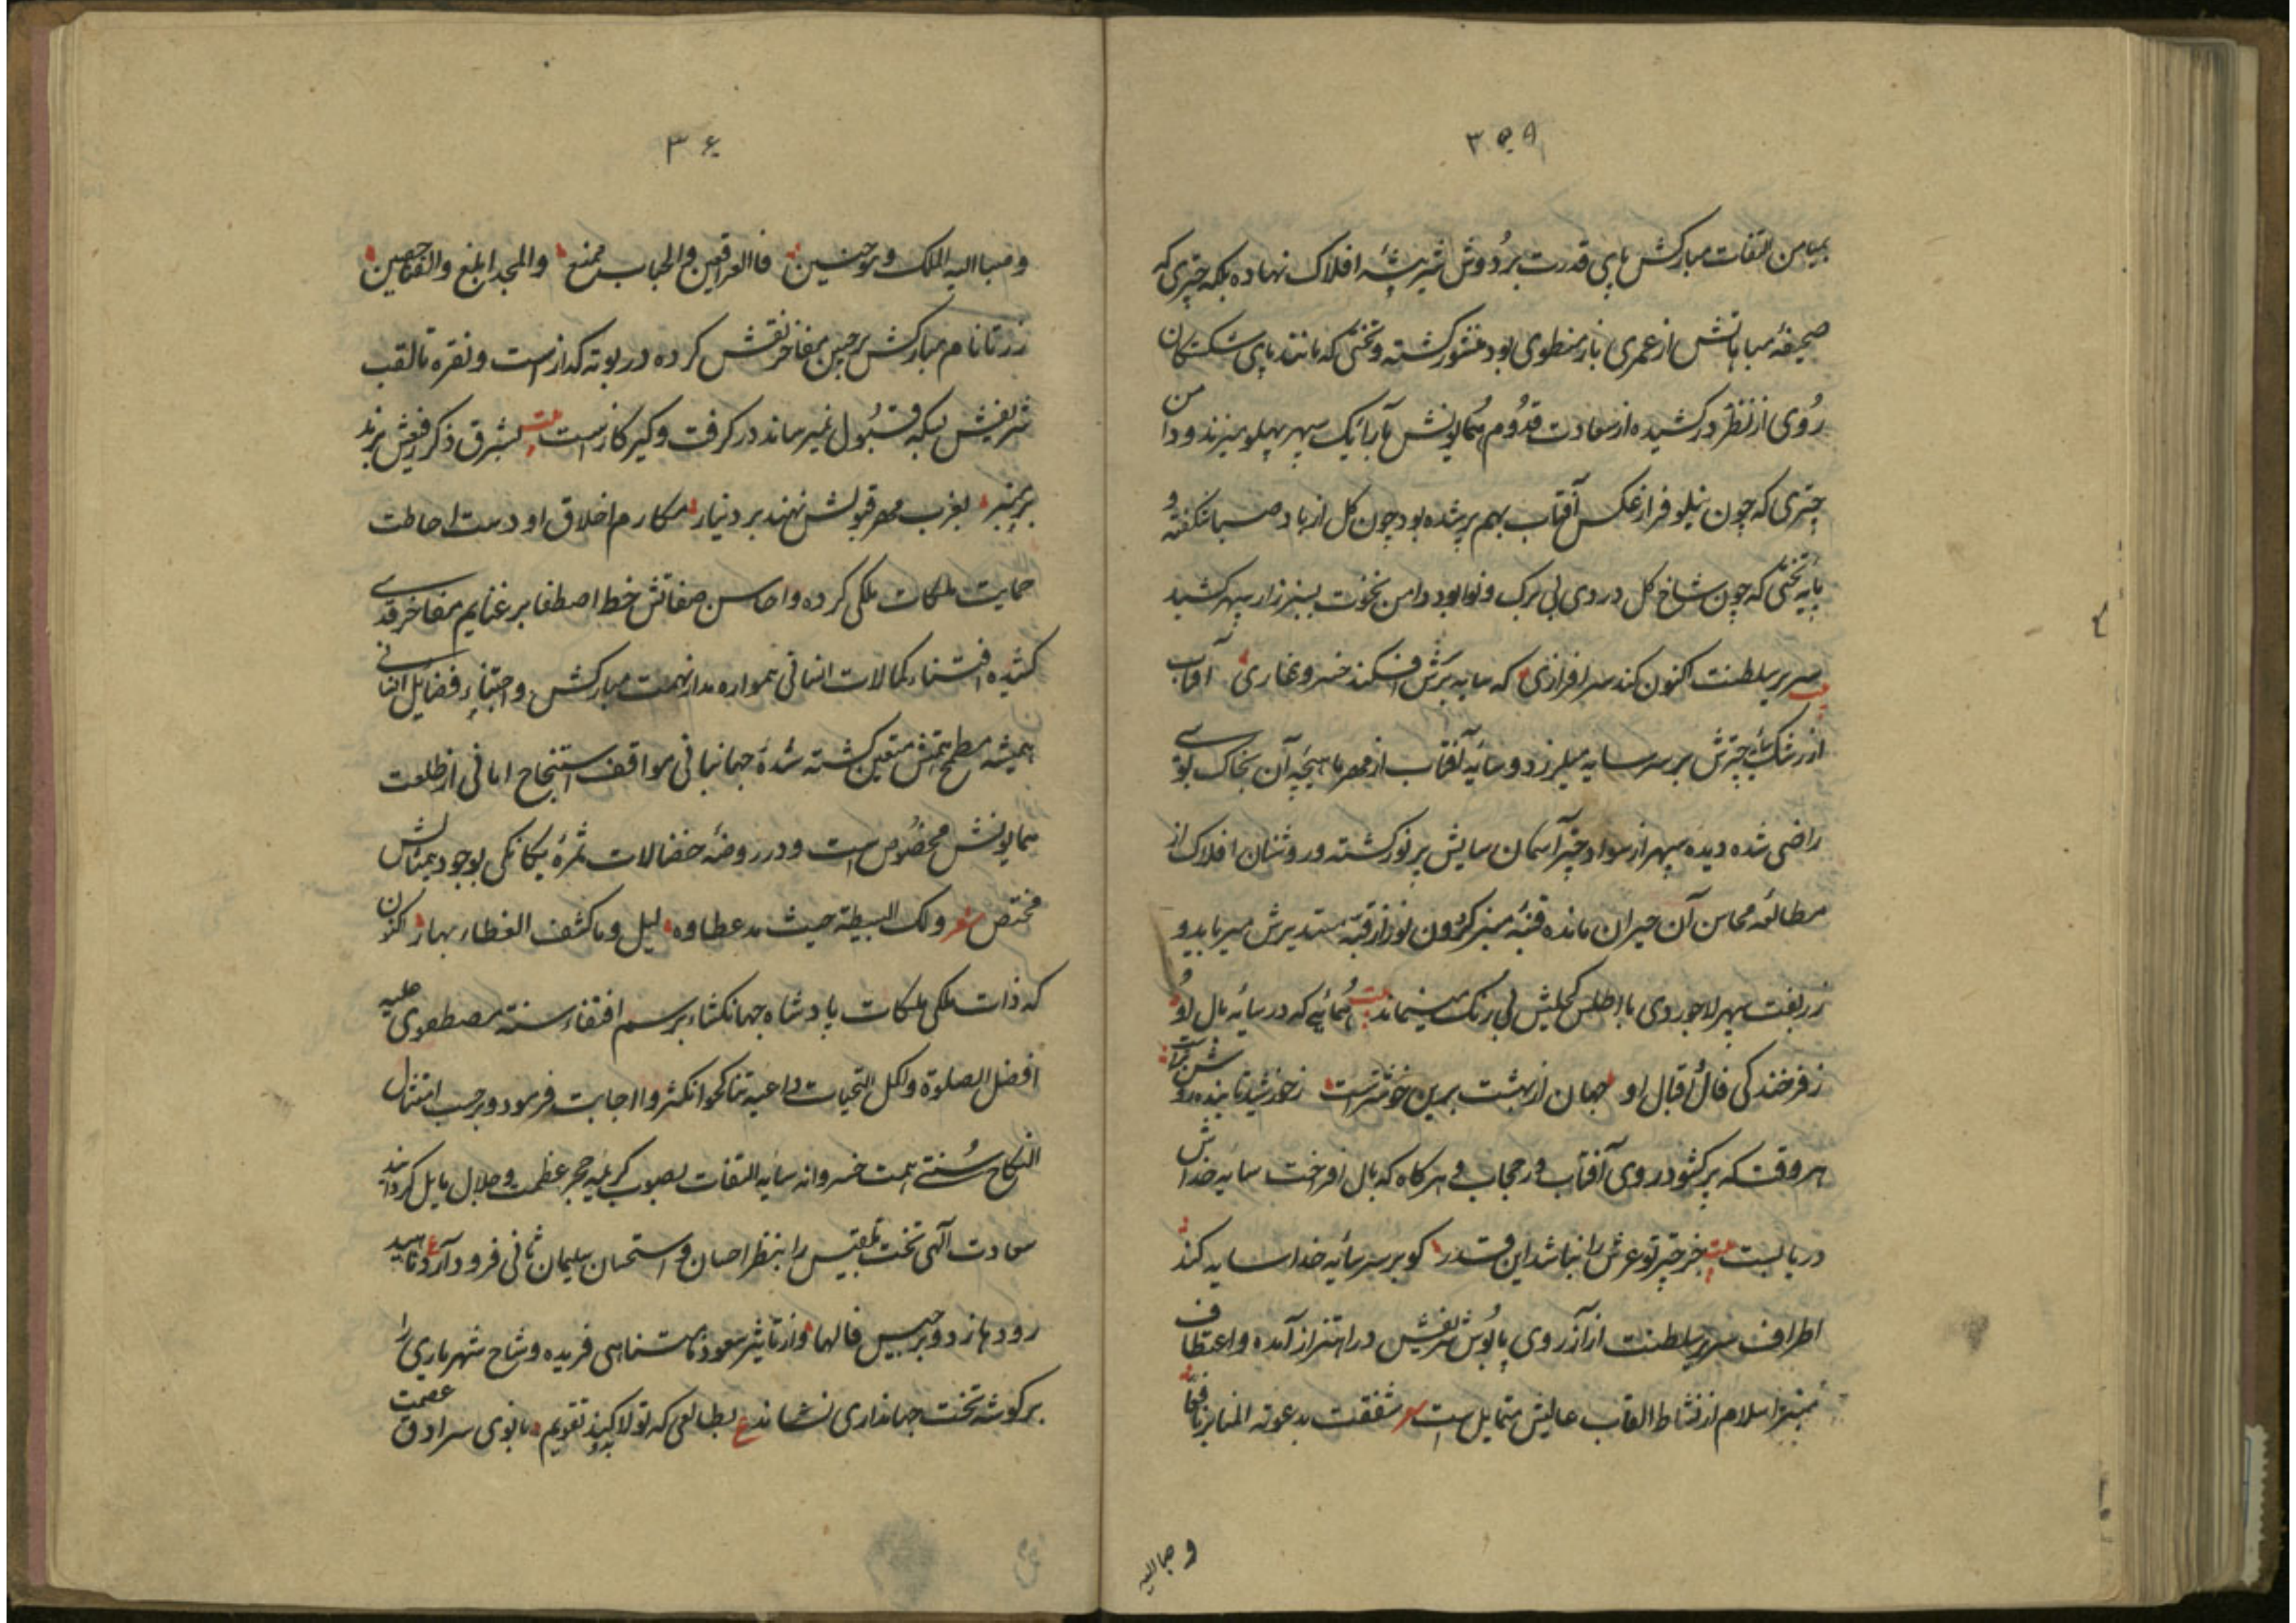 ۳۵۹
بمیامن التفات مبارکش پای قدرت بر دوش شیر بیشه افلاک نهاده بلکه چتری که
صحیفه مباهاتش از عمری باز منطوی بود منشور کشته و تختی که مانند پای شکستکان
روی از نظر درکشیده از سعادت قدوم همایونش با رایک سپهر پهلو میزند و دامن
چتری که چون نیلوفر از عکس آفتاب بهم بر شده بود چون کل از باد صبا شکفته و
پایه تختی که چون شاخ کل در دی بی برک و نوا بود دامن نخوت بسبزه زار سپهر کشید
سریر سلطنت اکنون کند سرافرازی که سایه بر سرش افکند خسرو غازی آفتاب
از رشک سایه چترش بر سر سایه میلرزد و سایه آفتاب از مهر ماهیچه آن بخاک بوسی
راضی شده دیده سپهر از سواد چتر آسمان سایش پر نور کشته و روشنان افلاک از
مطالعه محاسن آن حیران مانده قبه منیر کردون نور از قبه مستدیرش میرباید و
زربفت سپهر لاجوردی با اطلس کحلیش بی رنک مینماید بیت همائی که در سایه بال او
ز فرخندکی فال اقبال او جهان از بهشت برین خوشترست ز خورشید تابنده روشن تراست
هر وقت که پر کشود روی آفتاب در حجاب و هر کاه که بال افراخت سایه خداش
دربایست بیت جز چتر تو عرش را نباشد این قدر کو بر سر سایه خدا سایه کند
اطراف سریر سلطنت از آرزوی پابوس شریفش در اهتزاز آمده و اعطاف
منبر اسلام از نشاط القاب عالیش متمایل است شعر شغفت بدعوته المنابر
و مباالیه
۳۶
و مباالیه الملک و فاالعراقین والجناب ممنع والمجد ابلغ و
زر تا نام مبارکش بر جبین مفاخر نقش کرده در بوته کدازست و نقره تا لقب
شریفش بسکه قبول نمیرساند در کرفت و کیر کازست بیت بشرق ذکر رفیعش برند
بر منبر بغرب مهر قبولش نهند بر دینار مکارم اخلاق او دست احاطت
حمایت ملکات ملکی کرده و احاسن صفاتش خط اصطفا بر غنایم مفاخر قدسی
کشیده اقتناء کمالات انسانی همواره مدار نهمت مبارکش و اجتناء فضایل النسانی
همیشه مطمح همتش متعین کشته شده جهانبانی مواقف استنجاح امانی از طلعت
همایونش مخصوص است و در روضه خضالات ثمره یکانکی بوجود بیمثالش
مختص شعر ولک البسیطة حیث مد عطاوه لیل وماکشف الغطاء نهار اکنون
که ذات ملکی ملکات پادشاه جهانکشاء برسم اقتفاء سنت مصطفوی علیه
افضل الصلوة واکمل التحیات داعیه تناکحوا تکثروا اجابت فرمود و برحسب امتثال
النکاح سنتی همت خسروانه سایه التفات بصوب کریمه حجر عظمت و جلال مایل کردانید
سعادت آلهی تخت بلقیس را بنظر احسان و استحسان سلیمان ثانی فرود آرد ع ناهید
رود سازد و برجیس فالها و از تاثیر سعود نامتناهی فریده وشاح شهریاری را
بر کوشه تخت جهانداری نشاند ع بطالعی که تولا کند بدو تقویم بانوی سرادق عصمت